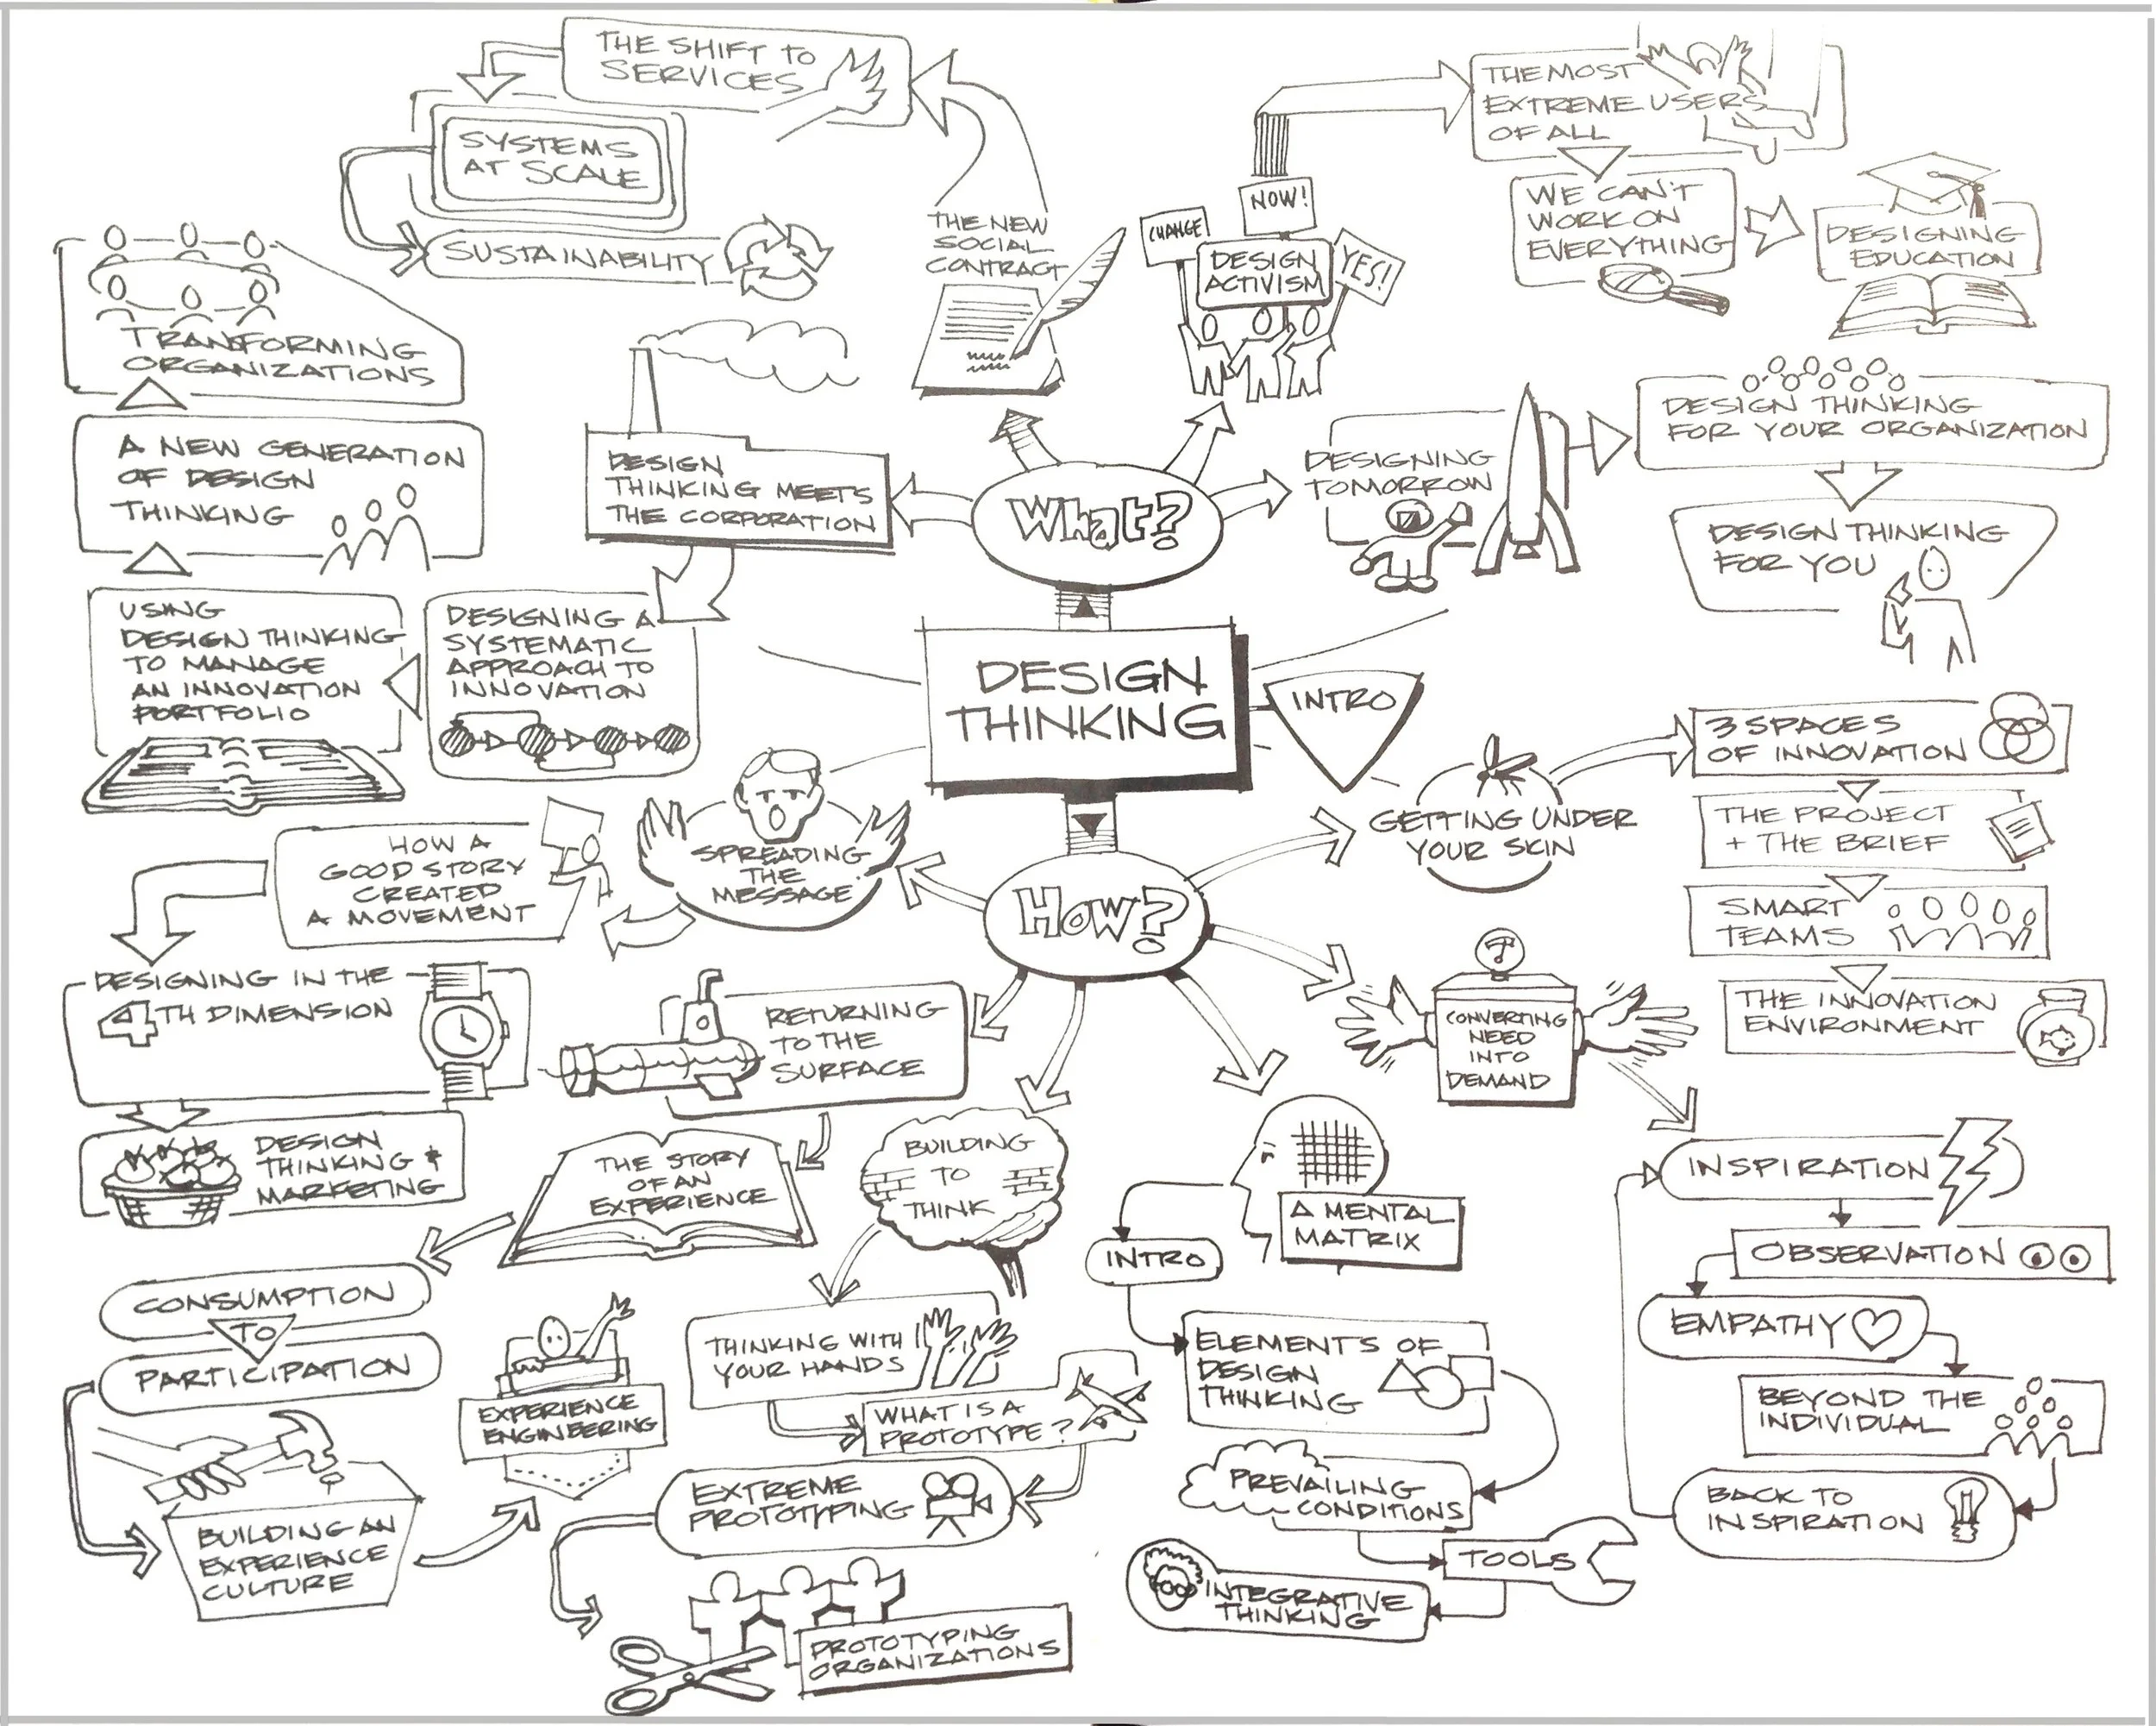 DESIGN
THINKING
INTRO
What?
THE NEW
SOCIAL
CONTRACT
THE SHIFT TO
SERVICES
SYSTEMS
AT SCALE
SUSTAINABILITY
CHANGE
NOW!
YES!
DESIGN
ACTIVISM
THE MOST
EXTREME USERS
OF ALL
WE CAN'T
WORK ON
EVERYTHING
DESIGNING
EDUCATION
DESIGNING
TOMORROW
DESIGN THINKING
FOR YOUR ORGANIZATION
DESIGN THINKING
FOR YOU
DESIGN
THINKING MEETS
THE CORPORATION
DESIGNING A
SYSTEMATIC
APPROACH TO
INNOVATION
USING
DESIGN THINKING
TO MANAGE
AN INNOVATION
PORTFOLIO
A NEW GENERATION
OF DESIGN
THINKING
TRANSFORMING
ORGANIZATIONS
How?
GETTING UNDER
YOUR SKIN
3 SPACES
OF INNOVATION
THE PROJECT
+ THE BRIEF
SMART
TEAMS
THE INNOVATION
ENVIRONMENT
CONVERTING
NEED
INTO
DEMAND
INSPIRATION
OBSERVATION
EMPATHY
BEYOND THE
INDIVIDUAL
BACK TO
INSPIRATION
A MENTAL
MATRIX
INTRO
ELEMENTS OF
DESIGN
THINKING
PREVAILING
CONDITIONS
TOOLS
INTEGRATIVE
THINKING
BUILDING
TO
THINK
THINKING WITH
YOUR HANDS
WHAT IS A
PROTOTYPE?
EXTREME
PROTOTYPING
PROTOTYPING
ORGANIZATIONS
RETURNING
TO THE
SURFACE
THE STORY
OF AN
EXPERIENCE
CONSUMPTION
TO
PARTICIPATION
BUILDING AN
EXPERIENCE
CULTURE
EXPERIENCE
ENGINEERING
SPREADING
THE
MESSAGE
HOW A
GOOD STORY
CREATED
A MOVEMENT
DESIGNING IN THE
4TH DIMENSION
DESIGN
THINKING &
MARKETING